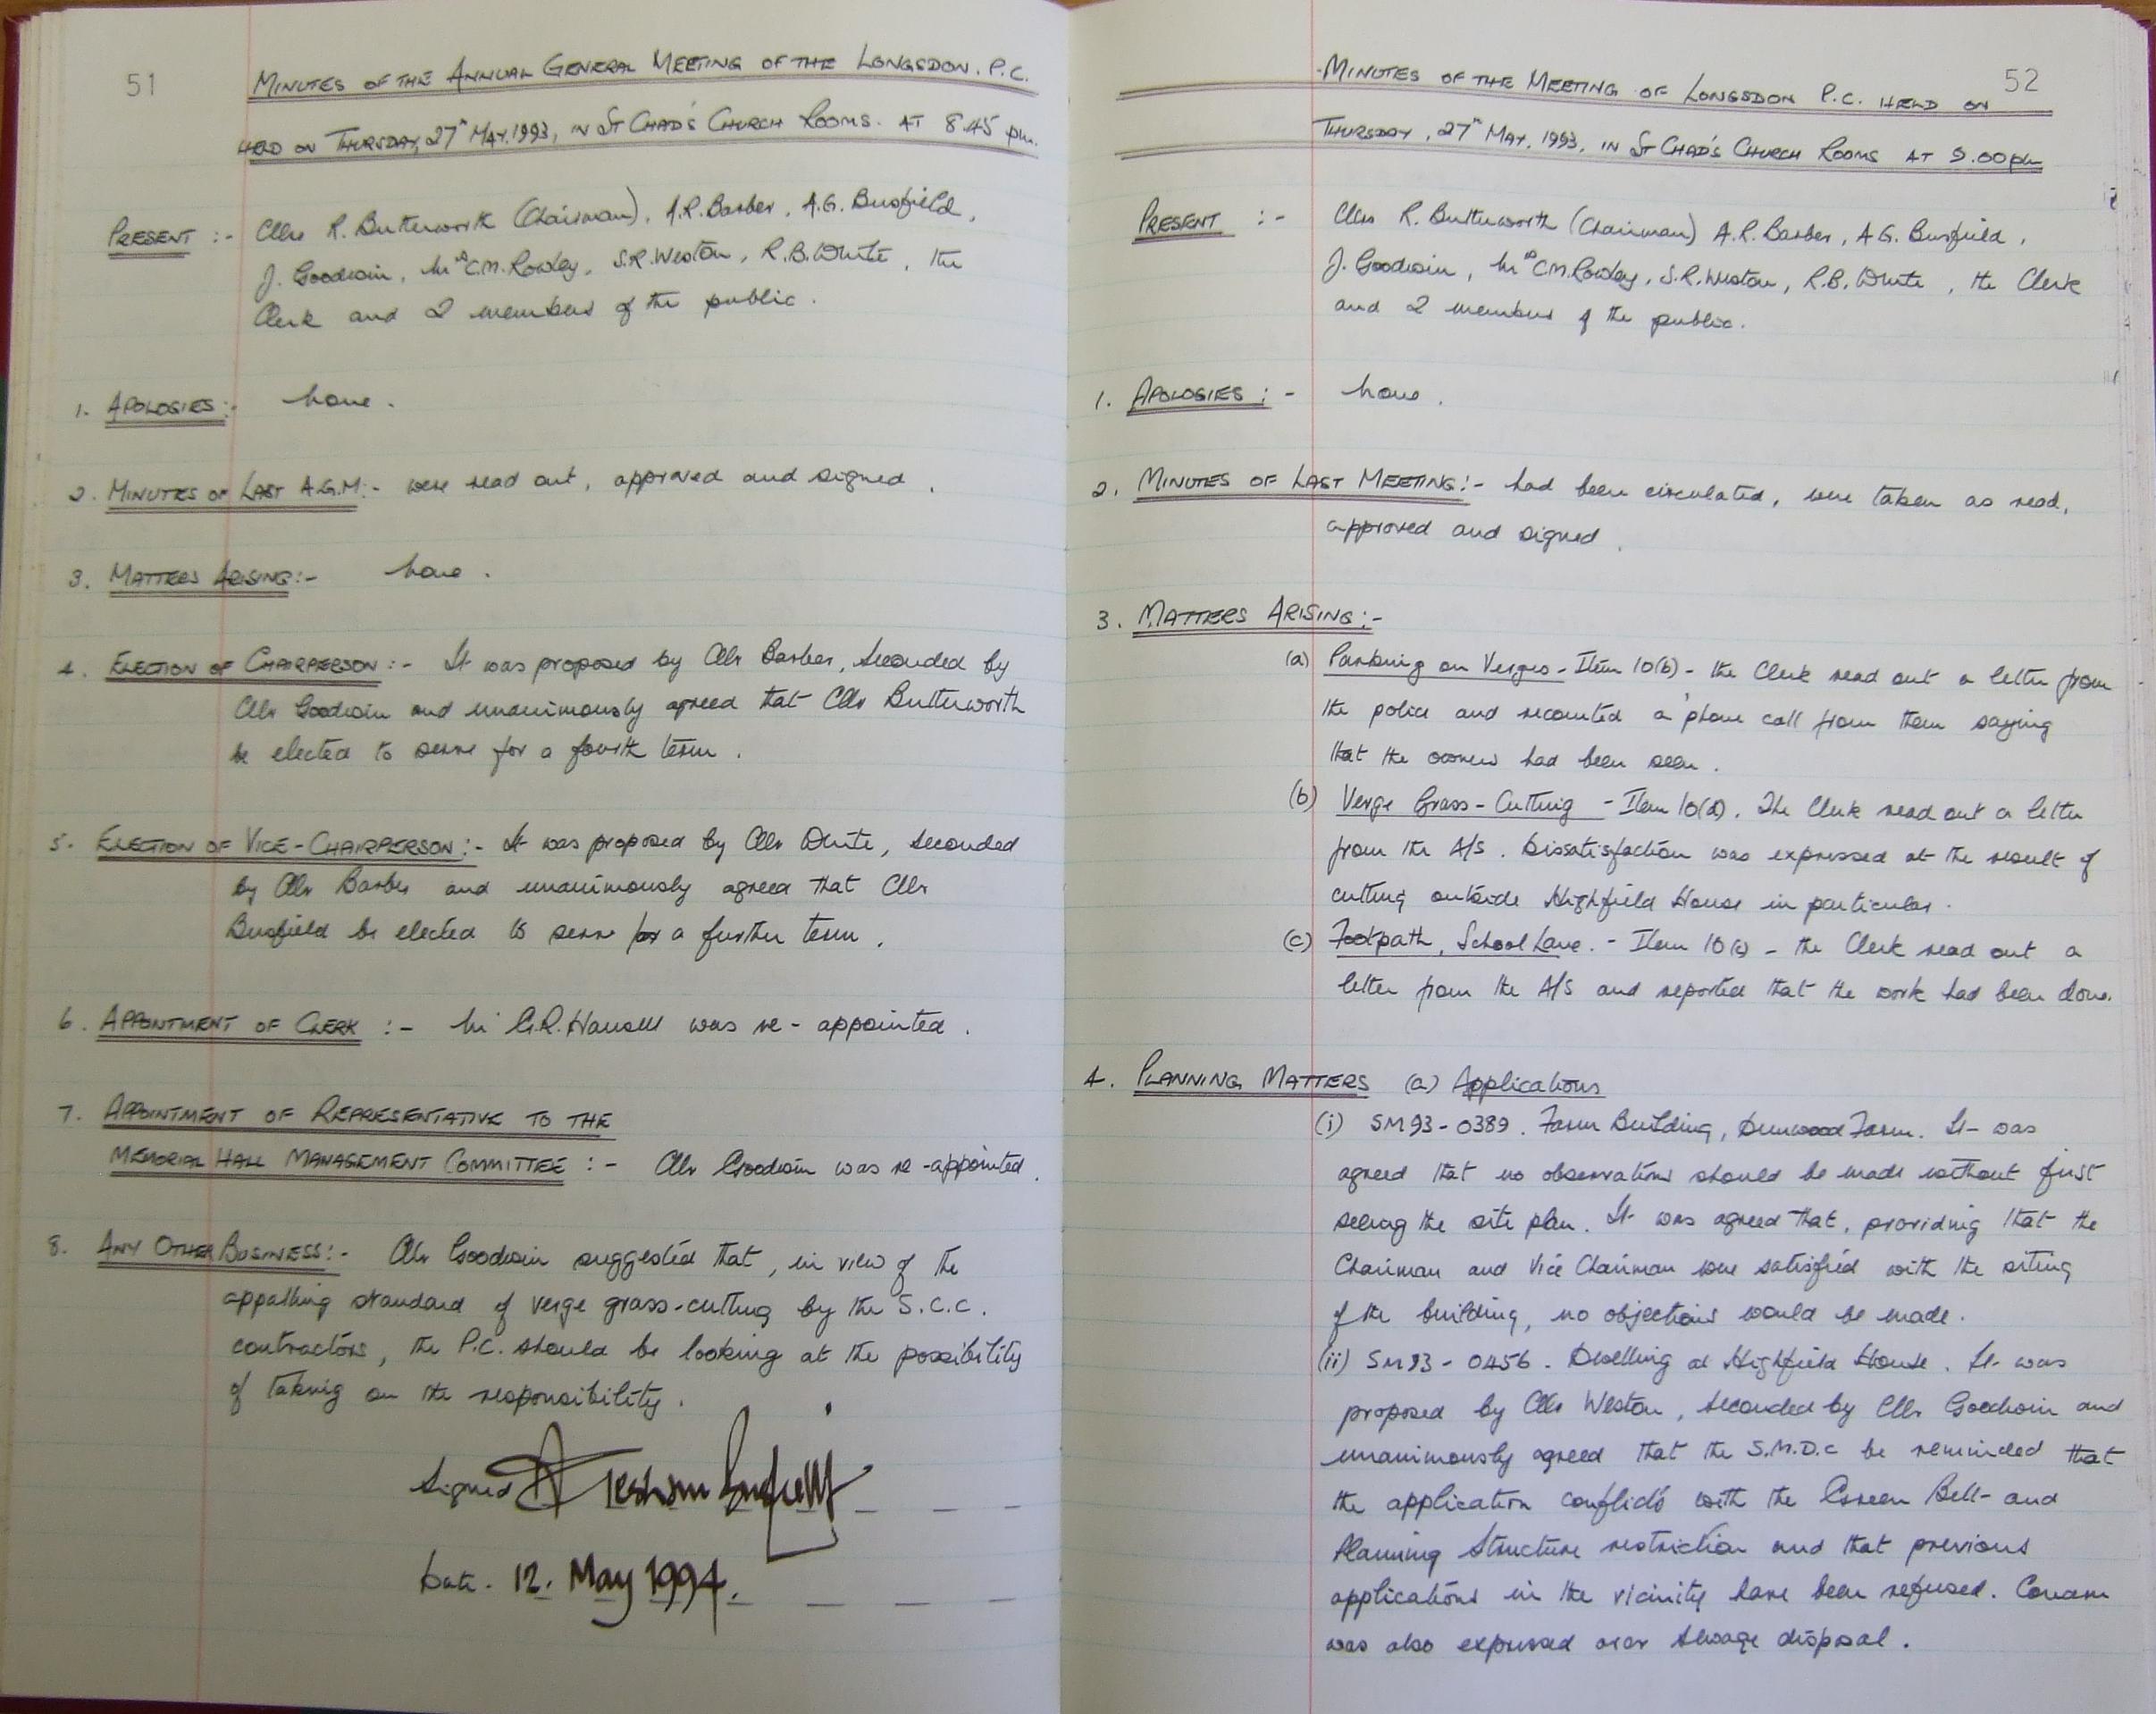 51
MINUTES OF THE ANNUAL GENERAL MEETING OF THE LONGSDON. P.C.
HELD ON THURSDAY, 27th MAY, 1993, IN ST CHAD'S CHURCH ROOMS. AT 8.45 pm.
PRESENT :- Cllrs R. Butterworth (Chairman), A.R. Barber, A.G. Busfield,
J. Goodwin, Mrs C.M. Rowley, S.R. Weston, R.B. White, the
Clerk and 2 members of the public.
1. APOLOGIES:- None.
2. MINUTES OF LAST A.G.M:- were read out, approved and signed.
3. MATTERS ARISING:- None.
4. ELECTION OF CHAIRPERSON:- It was proposed by Cllr Barber, seconded by
Cllr Goodwin and unanimously agreed that Cllr Butterworth
be elected to serve for a fourth term.
5. ELECTION OF VICE-CHAIRPERSON:- It was proposed by Cllr White, seconded
by Cllr Barber and unanimously agreed that Cllr
Busfield be elected to serve for a further term.
6. APPOINTMENT OF CLERK :- Mr G.R. Hansell was re-appointed.
7. APPOINTMENT OF REPRESENTATIVE TO THE
MEMORIAL HALL MANAGEMENT COMMITTEE :- Cllr Goodwin was re-appointed.
8. ANY OTHER BUSINESS:- Cllr Goodwin suggested that, in view of the
appalling standard of verge grass-cutting by the S.C.C.
contractors, the P.C. should be looking at the possibility
of taking on the responsibility.
Signed Busfield
Date. 12. May 1994.
52
MINUTES OF THE MEETING OF LONGSDON P.C. HELD ON
THURSDAY, 27th MAY, 1993, IN ST CHAD'S CHURCH ROOMS AT 9.00pm
PRESENT :- Cllrs R. Butterworth (Chairman) A.R. Barber, A.G. Busfield,
J. Goodwin, Mrs C.M. Rowley, S.R. Weston, R.B. White, the Clerk
and 2 members of the public.
1. APOLOGIES :- None.
2. MINUTES OF LAST MEETING:- had been circulated, were taken as read,
approved and signed.
3. MATTERS ARISING:-
(a) Parking on Verges - Item 10(b) - the Clerk read out a letter from
the police and recounted a 'phone call from them saying
that the owners had been seen.
(b) Verge Grass-Cutting - Item 10(d). The Clerk read out a letter
from the A/S. Dissatisfaction was expressed at the result of
cutting outside Highfield House in particular.
(c) Footpath, School Lane. - Item 10(c) - the Clerk read out a
letter from the A/S and reported that the work had been done.
4. PLANNING MATTERS (a) Applications
(i) SM93-0389. Farm Building, Dunwood Farm. It was
agreed that no observations should be made without first
seeing the site plan. It was agreed that, providing that the
Chairman and Vice Chairman were satisfied with the siting
of the building, no objections would be made.
(ii) SM93-0456. Dwelling at Highfield House. It was
proposed by Cllr Weston, seconded by Cllr Goodwin and
unanimously agreed that the S.M.D.C be reminded that
the application conflicts with the Green Belt and
Planning Structure restriction and that previous
applications in the vicinity have been refused. Concern
was also expressed over sewage disposal.